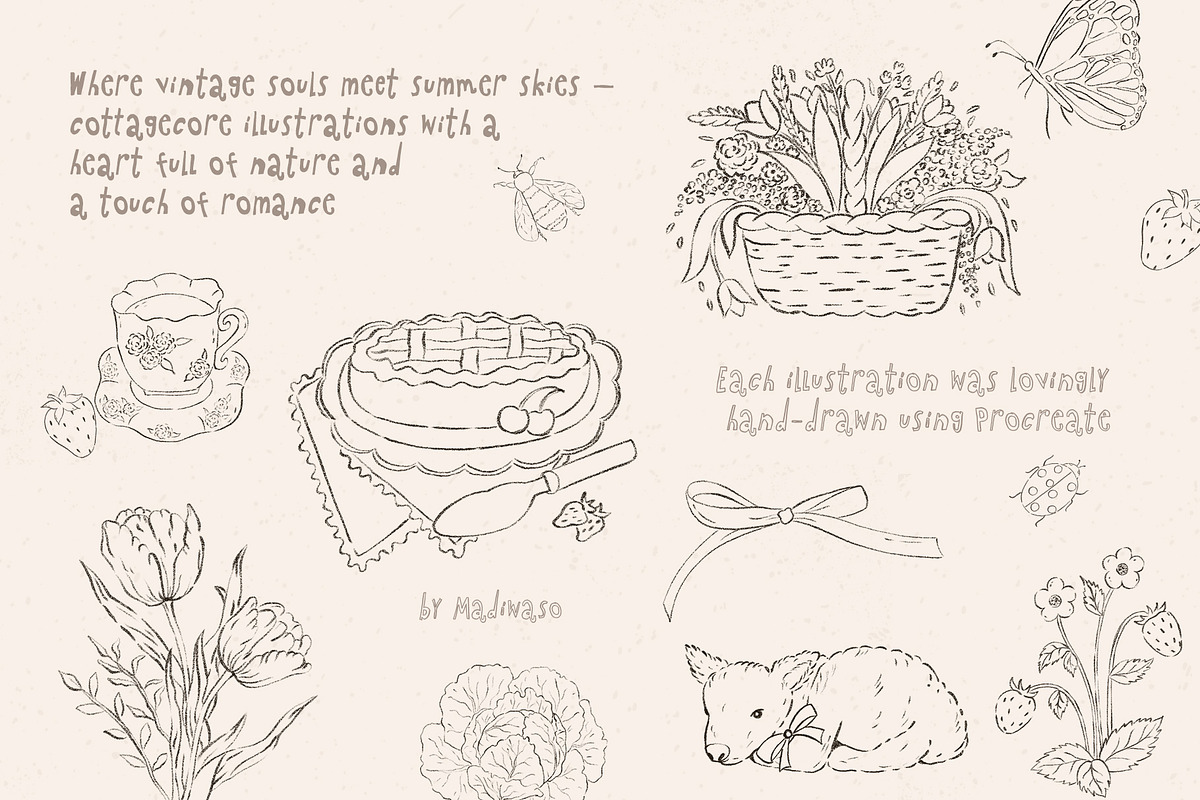 Where vintage souls meet summer skies —
cottagecore illustrations with a
heart full of nature and
a touch of romance
Each illustration was lovingly
hand-drawn using Procreate
by Madiwaso